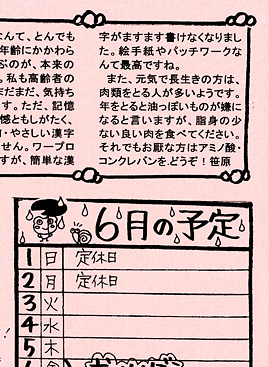 字がますます書けなくなりまし
た。絵手紙やパッチワークな
んて最高ですね。
また、元気で長生きの方は、
肉類をとる人が多いようです。
年をとると油っぽいものが嫌に
なると言いますが、脂身の少
ない良い肉を食べてください。
それでもお厭な方はアミノ酸・
コンクレパンを、どうぞ！笹原
なんて、とんでも
年齢にかかわら
ぶのが、本来の
。私も高齢者の
まだまだ、気持ち
す。ただ、記憶
憶ともしがたく、
・やさしい漢字
せん。ワープロ
すが、簡単な漢
6月の予定
1 日 定休日
2 月 定休日
3 火
4 水
5 木